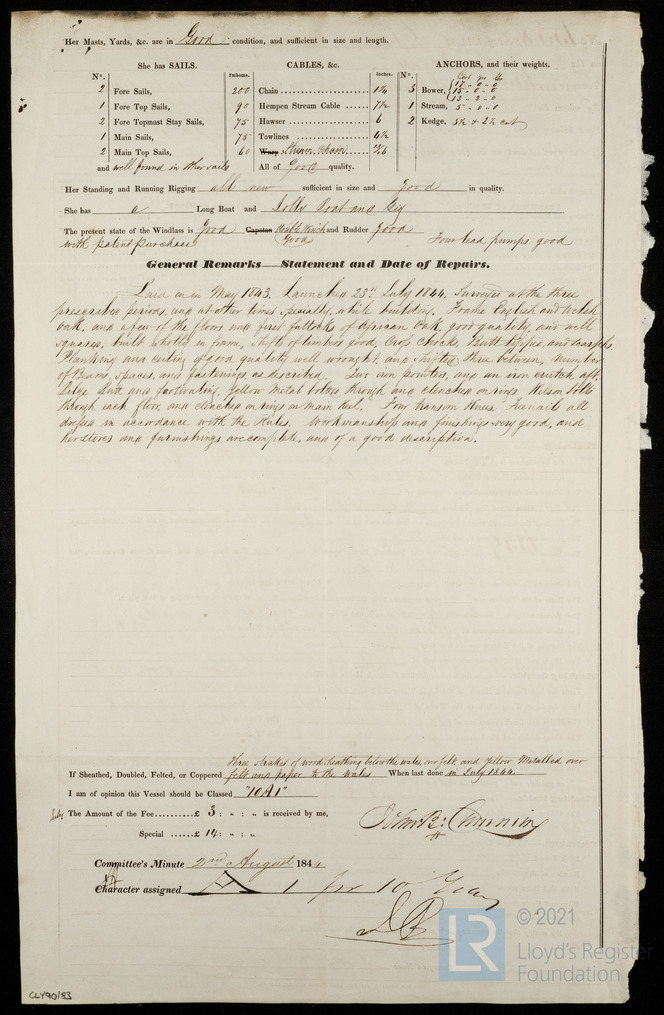 Her Masts, Yards, &c. are in Good condition, and sufficient in size and length.
She has SAILS. CABLES, &c. ANCHORS, and their weights.
No. Fathoms. Inches. No. Cwt qr lb
2 Fore Sails, 200 Chain 3 Bower, 17 - 0 - 0
15 - 0 - 0
13 - 2 - 0
1 Fore Top Sails, 90 Hempen Stream Cable 7½ 1 Stream, 5 - 0 - 0
2 Fore Topmast Stay Sails, 75 Hawser 6 2 Kedge, & 2½ cwt
1 Main Sails, 75 Towlines 4½
2 Main Top Sails, 60 Warp Stream Chain
and well found in other sails All of Good quality.
Her Standing and Running Rigging all new sufficient in size and good in quality.
She has a Long Boat and Jolly Boat and Gig
The present state of the Windlass is Good Capstan Double Winch and Rudder Good
with patent purchase Good Four lead pumps good
General Remarks—Statement and Date of Repairs.
Laid on in May 1843. Launched 23rd July 1844. Surveyed at the three
prescribed periods, and at other times specially, while building. Frame English and Welsh
oak, and a few of the floors and first futtocks of African Oak, good quality, and well
squared, built wholly in frame, Shifts of timbers good, Cross Chocks, Butt and scarphs
Planking and ceiling of good quality well wrought, and shifted three between, number
of Beams, spaces, and fastenings, as described. Two iron pointers, and an iron crutch aft.
Bilge Butt and footwaling, Yellow Metal bolted through and clenched on rings Kelson bolts
through each floor, and clenched on rings on Main Keel. Four transom Knees. Treenails all
dressed in accordance with the Rules. Workmanship and finishings very good, and
her stores and furnishings are complete, and of a good description.
Three strakes of wood sheathing below the wales, over felt, and Yellow Metalled over
If Sheathed, Doubled, Felted, or Coppered felt and paper to the wales When last done in July 1844.
I am of opinion this Vessel should be Classed "10 A1"
The Amount of the Fee £ 3 : „ : „ is received by me,
Special £ 14 : „ : „
Committee's Minute 2nd August 1844
Character assigned A 1 for 10 Years
LR
© 2021
Lloyd's Register
Foundation
CLY90/83